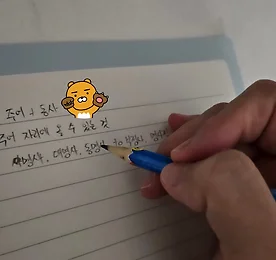 주어 + 동사
주어 자리에 올 수 있는 것
명사, 대명사, 동명사, to 부정사